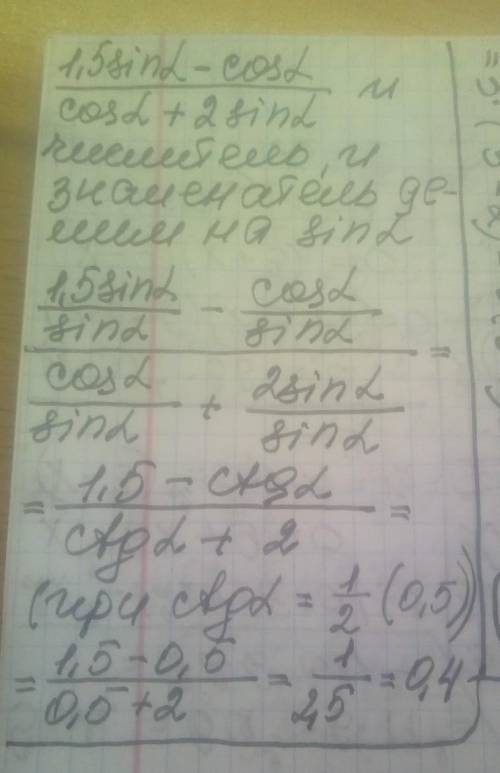 (1,5sinα - cosα)/(cosα + 2sinα) и
числитель, и
знаменатель де-
лим на sinα
(1,5sinα/sinα - cosα/sinα)/(cosα/sinα + 2sinα/sinα) =
= (1,5 - ctgα)/(ctgα + 2) =
(при ctgα = 1/2 (0,5))
= (1,5 - 0,5)/(0,5 + 2) = 1/2,5 = 0,4